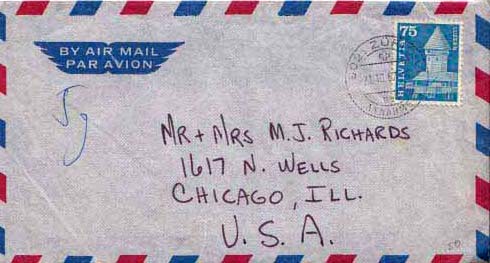 BY AIR MAIL
PAR AVION
75
HELVETIA
MR + MRS M.J. RICHARDS
1617 N. WELLS
CHICAGO, ILL.
U.S.A.